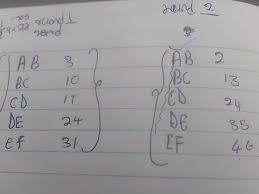 AB 3
BC 10
CD 17
DE 24
EF 31
AB 2
BC 13
CD 24
DE 35
EF 46